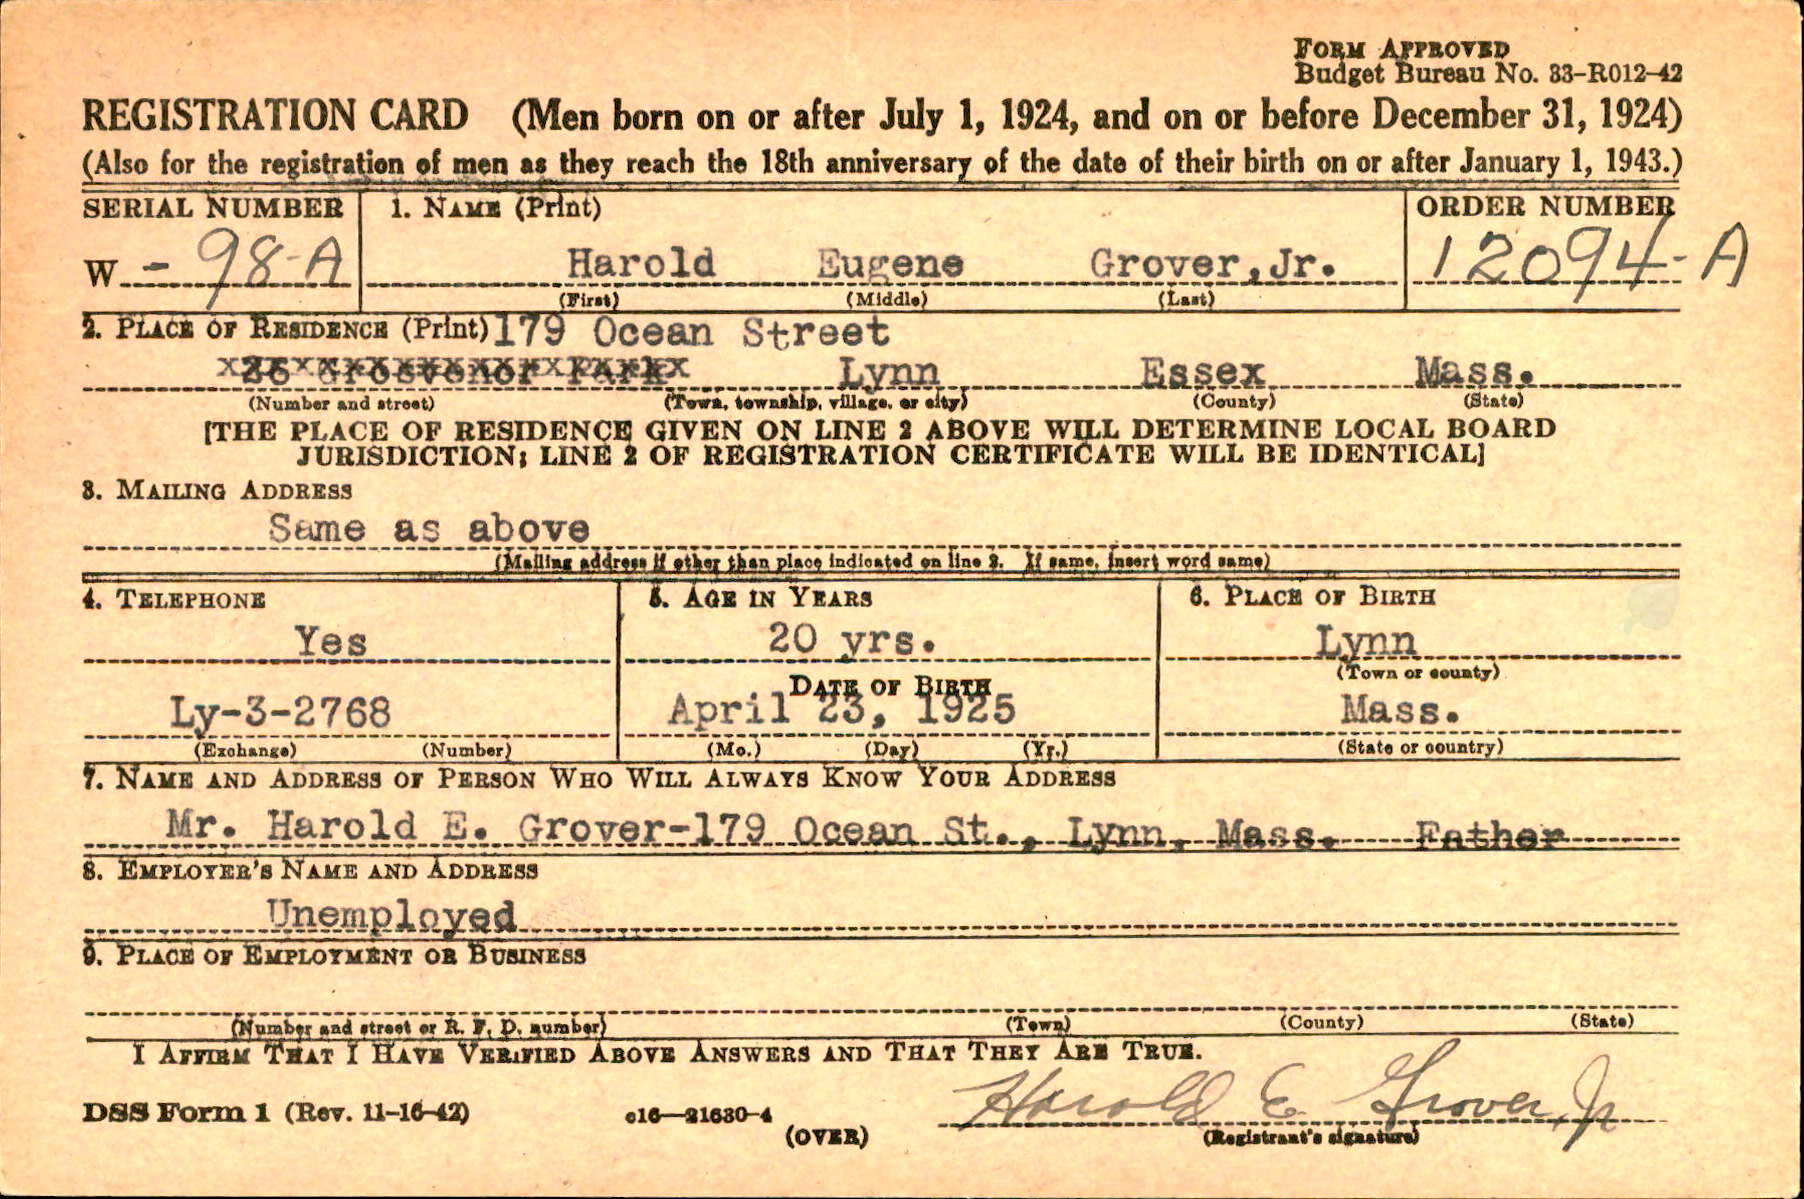 FORM APPROVED
Budget Bureau No. 33-R012-42
REGISTRATION CARD (Men born on or after July 1, 1924, and on or before December 31, 1924)
(Also for the registration of men as they reach the 18th anniversary of the date of their birth on or after January 1, 1943.)
SERIAL NUMBER 1. NAME (Print) ORDER NUMBER
W - 98-A Harold Eugene Grover, Jr. 12094-A
(First) (Middle) (Last)
2. PLACE OF RESIDENCE (Print) 179 Ocean Street
26 Grosvenor Park Lynn Essex Mass.
(Number and street) (Town, township, village, or city) (County) (State)
[THE PLACE OF RESIDENCE GIVEN ON LINE 2 ABOVE WILL DETERMINE LOCAL BOARD
JURISDICTION; LINE 2 OF REGISTRATION CERTIFICATE WILL BE IDENTICAL]
3. MAILING ADDRESS
Same as above
(Mailing address if other than place indicated on line 2. If same, insert word same)
4. TELEPHONE 5. AGE IN YEARS 6. PLACE OF BIRTH
Yes 20 yrs. Lynn
(Town or county)
DATE OF BIRTH
Ly-3-2768 April 23, 1925 Mass.
(Exchange) (Number) (Mo.) (Day) (Yr.) (State or country)
7. NAME AND ADDRESS OF PERSON WHO WILL ALWAYS KNOW YOUR ADDRESS
Mr. Harold E. Grover-179 Ocean St., Lynn, Mass. Father
8. EMPLOYER'S NAME AND ADDRESS
Unemployed
9. PLACE OF EMPLOYMENT OR BUSINESS
(Number and street or R. F. D. number) (Town) (County) (State)
I AFFIRM THAT I HAVE VERIFIED ABOVE ANSWERS AND THAT THEY ARE TRUE.
DSS Form 1 (Rev. 11-16-42) c16—21630-4 Harold E Grover, Jr
(OVER) (Registrant's signature)